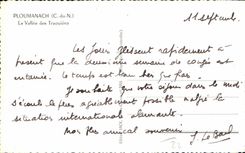 PLOUMANACH (C. du N.)
La Vallée des Traouiéro
11 sept
Les jours glissent rapidement à
présent que la deuxième semaine de congés est
entamée. Le temps est bien
Je souhaite que votre séjour dans le midi
s'écoule le plus agréablement possible malgré la
situation internationale alarmante.
Mon amical souvenir